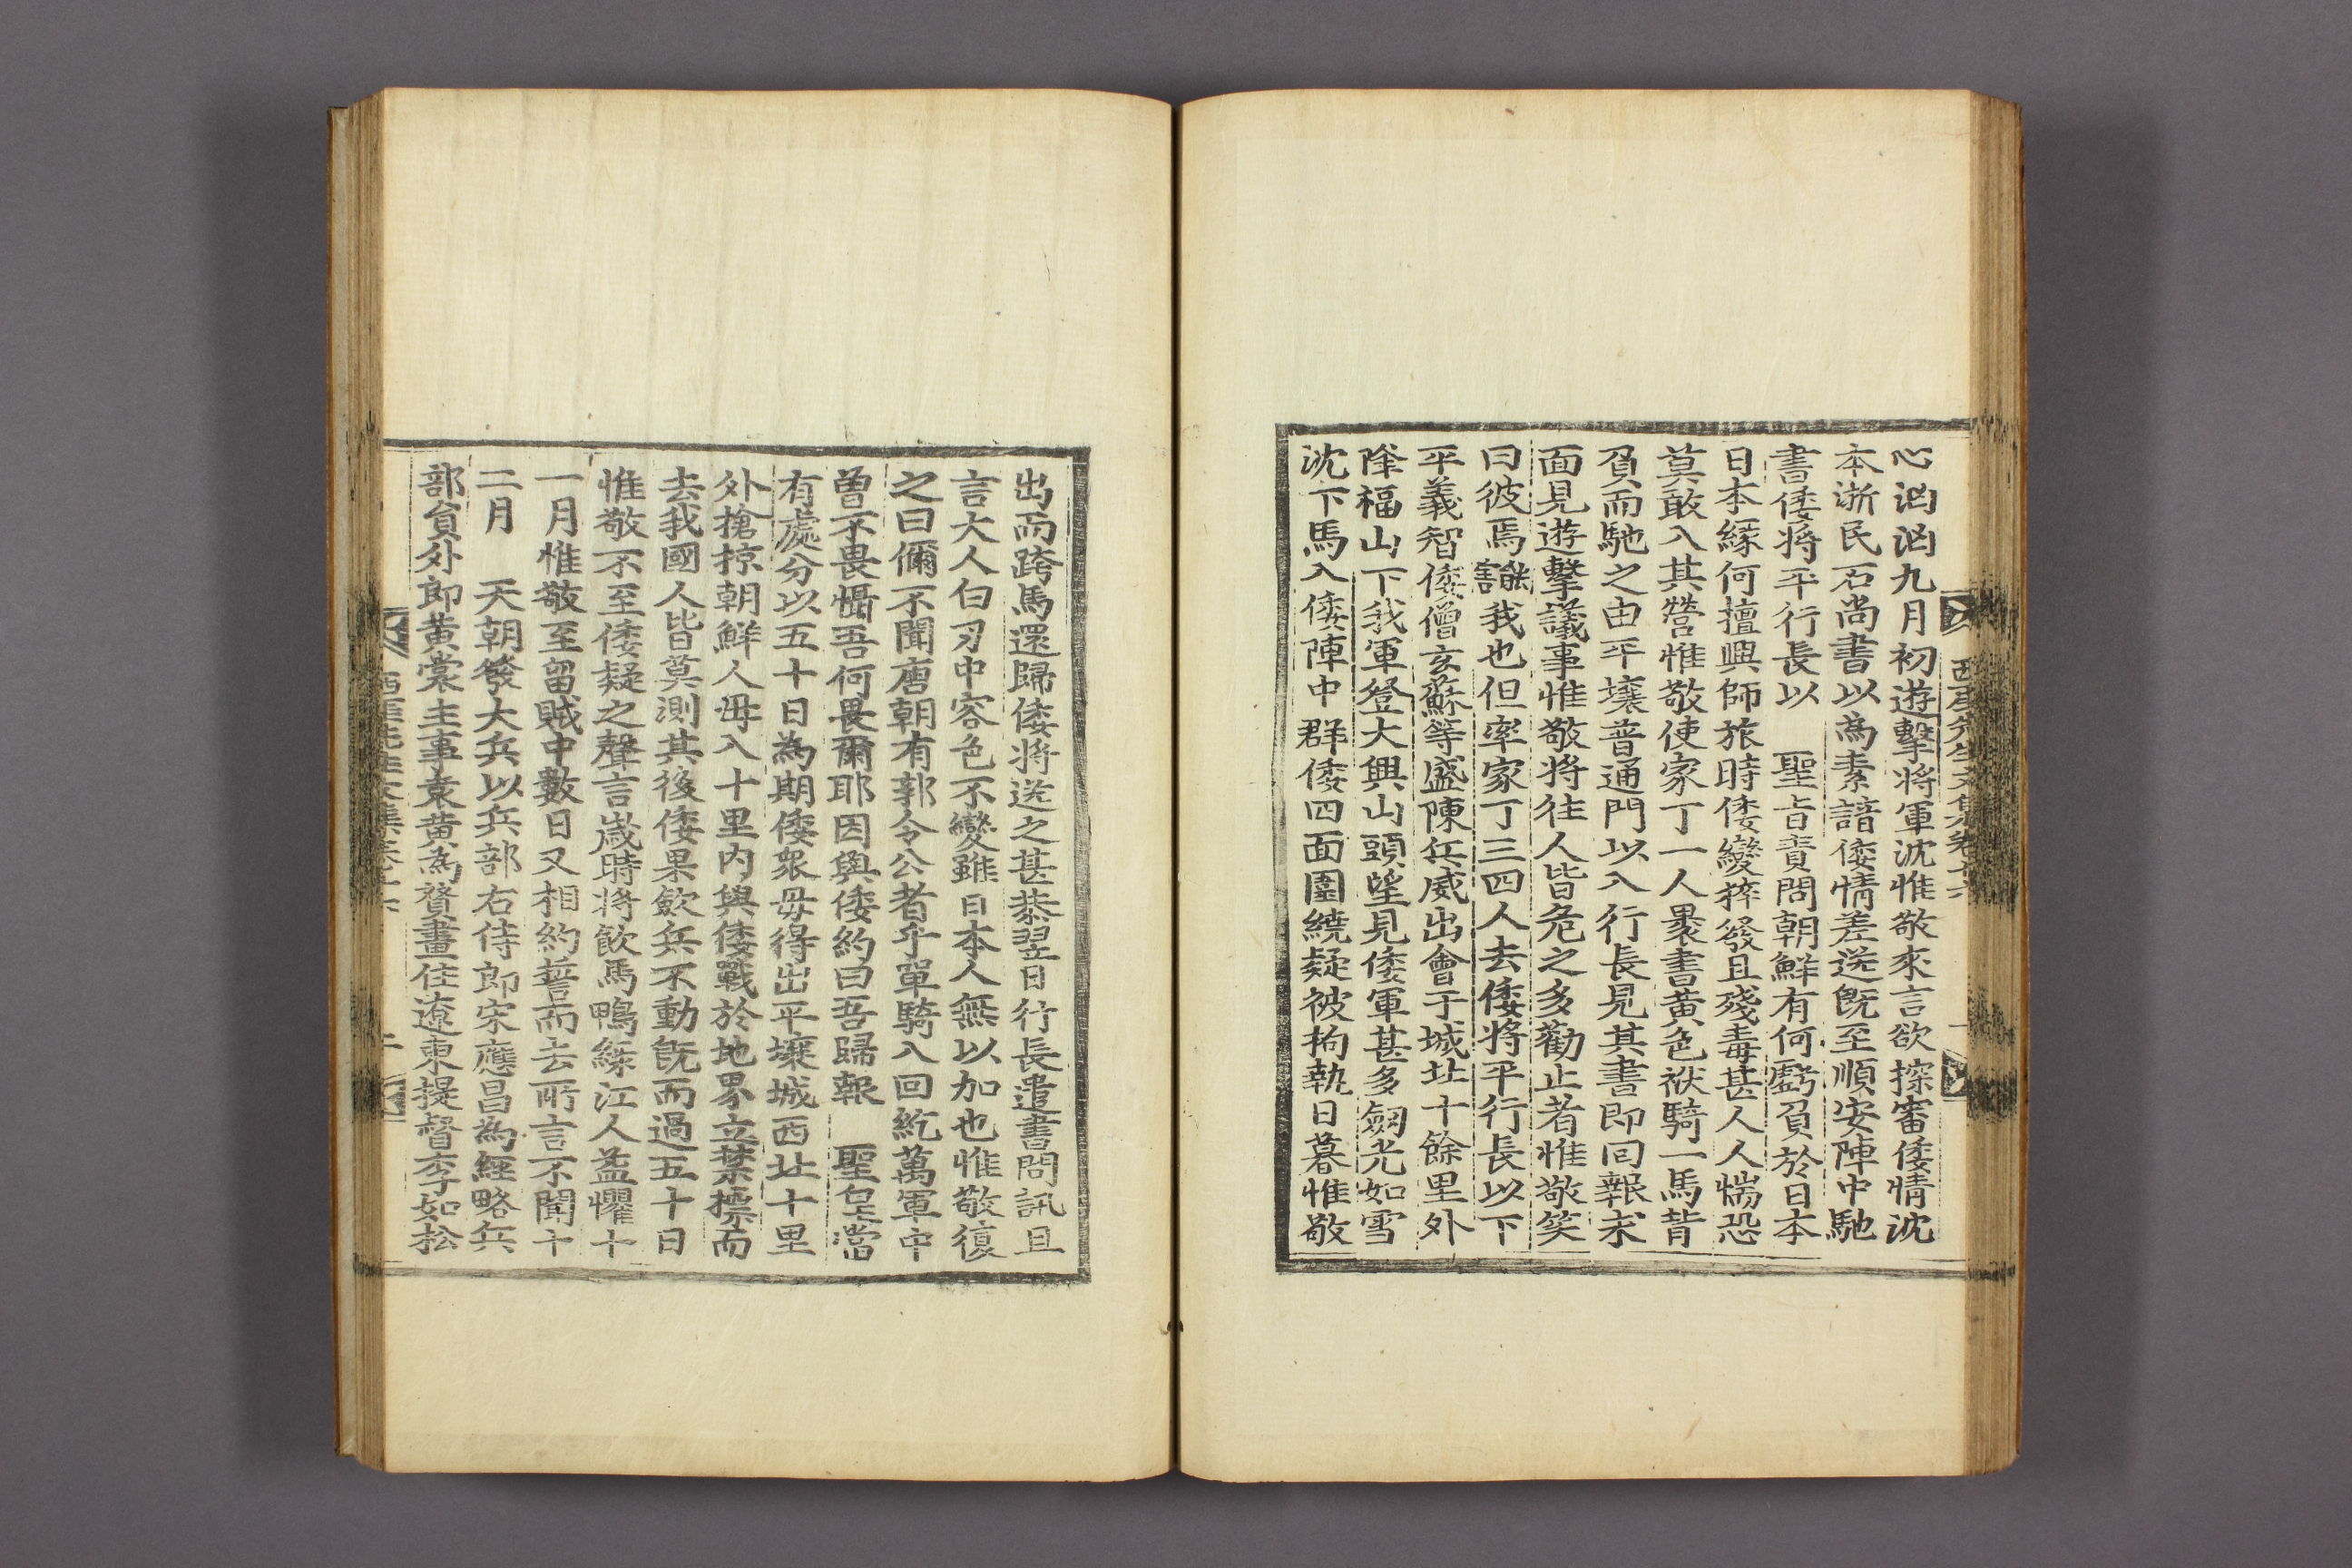 心洶洶九月初遊擊將軍沈惟敬來言欲探審倭情沈
本浙民石尚書以為素諳倭情差送旣至順安陣中馳
書倭將平行長以　聖旨責問朝鮮有何虧負於日本
日本緣何擅興師旅時倭變猝發且殘毒甚人人惴恐
莫敢入其營惟敬使家丁一人褁書黃色袱騎一馬背
負而馳之由平壤普通門以入行長見其書卽回報求
面見遊擊議事惟敬將往人皆危之多勸止者惟敬笑
曰彼焉能害我也但率家丁三四人去倭將平行長以下
平義智倭僧玄蘇等盛陳兵威出會于城北十餘里外
降福山下我軍登大興山頭望見倭軍甚多劒光如雪
沈下馬入倭陣中群倭四面圍繞疑被拘執日暮惟敬
西厓先生文集卷十六
出而跨馬還歸倭將送之甚恭翌日行長遣書問訊且
言大人白刃中容色不變雖日本人無以加也惟敬復
之曰儞不聞唐朝有郭令公者乎單騎入回紇萬軍中
曾不畏懾吾何畏爾耶因與倭約曰吾歸報　聖皇當
有處分以五十日為期倭衆毋得出平壤城西北十里
外搶掠朝鮮人毋入十里內與倭戰於地界立禁標而
去我國人皆莫測其後倭果歛兵不動旣而過五十日
惟敬不至倭疑之聲言歲時將飮馬鴨綠江人益懼十
一月惟敬至留賊中數日又相約誓而去所言不聞十
二月　天朝發大兵以兵部右侍郞宋應昌為經略兵
部員外郞黃裳主事袁黃為贊畫住遼東提督李如松
西厓先生文集卷十六　二